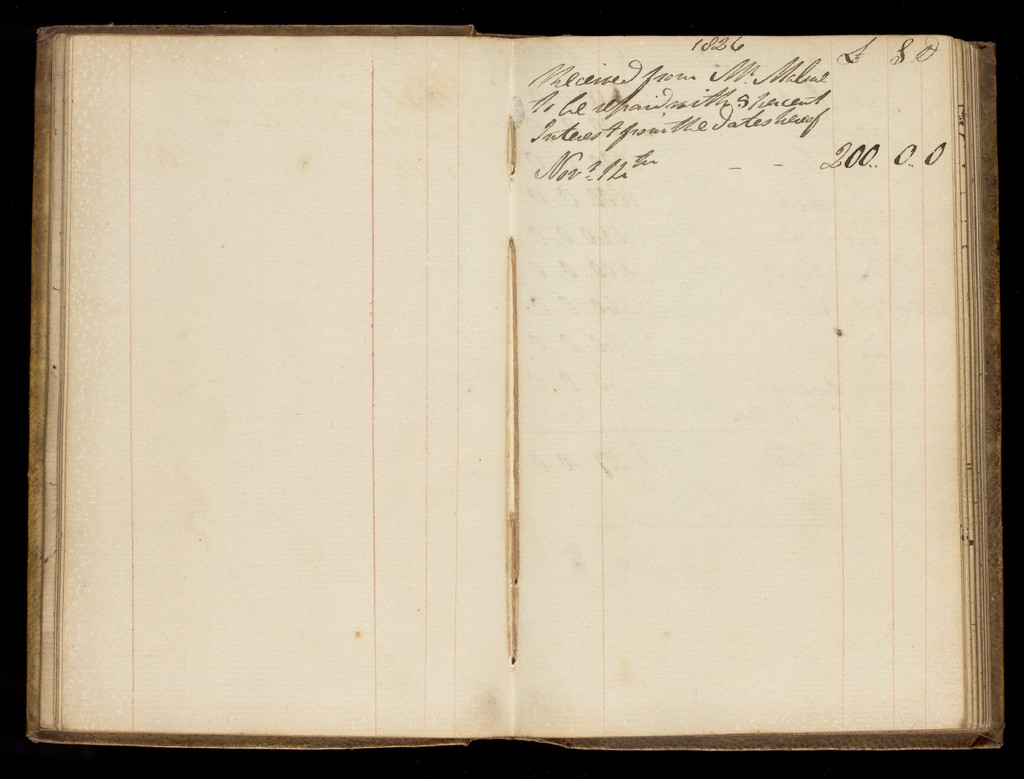 1826
£ S D
Received from Mr. Malue
to be repaid with 5 percent
Interest from the dates hereof
Novr. 12th - - 200.. 0.. 0